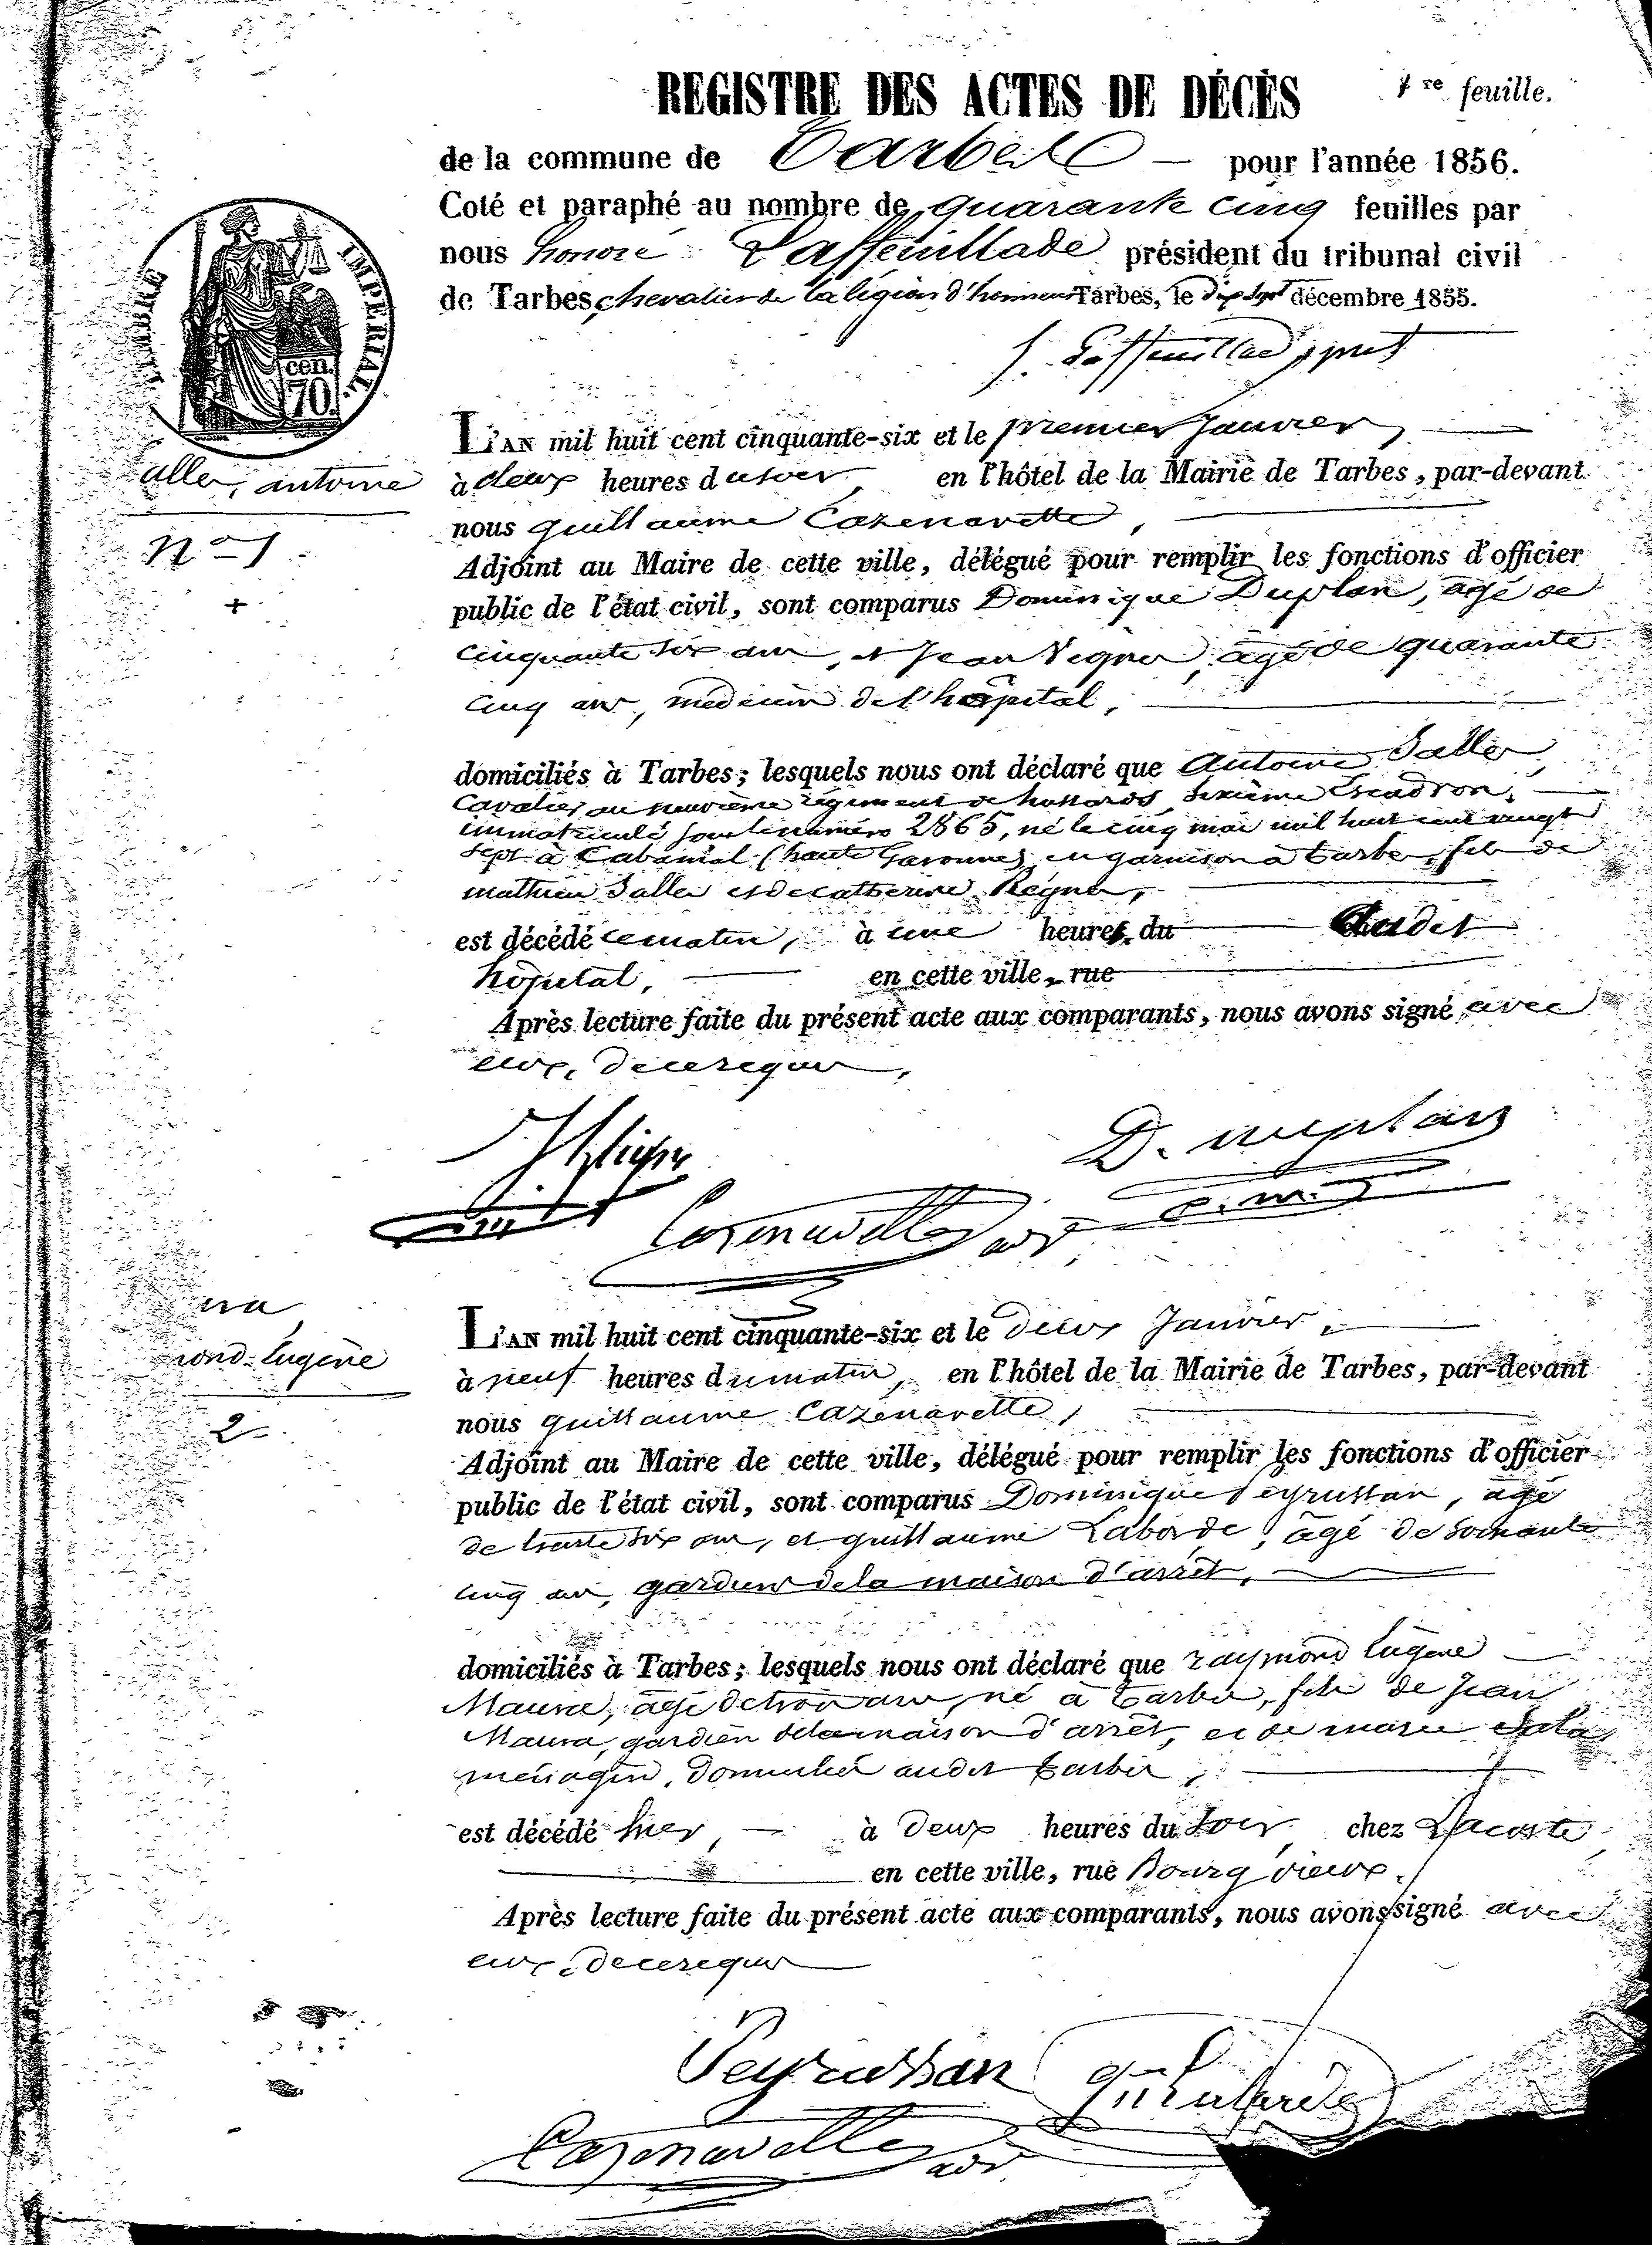 REGISTRE DES ACTES DE DÉCÈS
1re feuille.
de la commune de Tarbes — pour l'année 1856.
Coté et paraphé au nombre de quarante cinq feuilles par
nous honoré Laffeuillade président du tribunal civil
de Tarbes, chevalier de la légion d'honneur Tarbes, le dix sept décembre 1855.
TIMBRE IMPERIAL
cen.
70.
L'AN mil huit cent cinquante-six et le premier Janvier,
à deux heures du soir, en l'hôtel de la Mairie de Tarbes, par-devant
nous guillaume Cazenavette,
Adjoint au Maire de cette ville, délégué pour remplir les fonctions d'officier
public de l'état civil, sont comparus Dominique Duplan, âgé de
cinquante six ans, et Jean Vignes, âgé de quarante
cinq ans, médecin de l'hôpital,
domiciliés à Tarbes; lesquels nous ont déclaré que Antoine Salles
Cavalier au neuvième régiment de hussards, sixième Escadron,
immatriculé sous le numéro 2865, né le cinq mai mil huit cent vingt
sept à Cabanial (haute Garonne) en garnison à tarbes, fils de
mathieu Salles et de catherine Régnes,
est décédé ce matin, à une heure du audit
hôpital, en cette ville, rue
Après lecture faite du présent acte aux comparants, nous avons signé avec
eux, de ce requis,
alles, antoine
nº 1
+
D. Duplan
Cazenavette adj.
L'AN mil huit cent cinquante-six et le deux Janvier,
à neuf heures du matin, en l'hôtel de la Mairie de Tarbes, par-devant
nous guillaume Cazenavette,
Adjoint au Maire de cette ville, délégué pour remplir les fonctions d'officier
public de l'état civil, sont comparus Dominique Peyrussan, âgé
de trente six ans, et guillaume Laborde, âgé de soixante
cinq ans, gardiens de la maison d'arrêt,
domiciliés à Tarbes; lesquels nous ont déclaré que raymond Eugène
Maura, âgé de trois ans, né à tarbes, fils de Jean
Maura, gardien de la maison d'arrêt, et de marie
ménagère, domiciliés audit tarbes,
est décédé hier, à deux heures du soir, chez Lacoste,
en cette ville, rue Bourg vieux.
Après lecture faite du présent acte aux comparants, nous avons signé avec
eux, de ce requis
ura
mond Eugène
2
Peyrussan
Cazenavette adj.